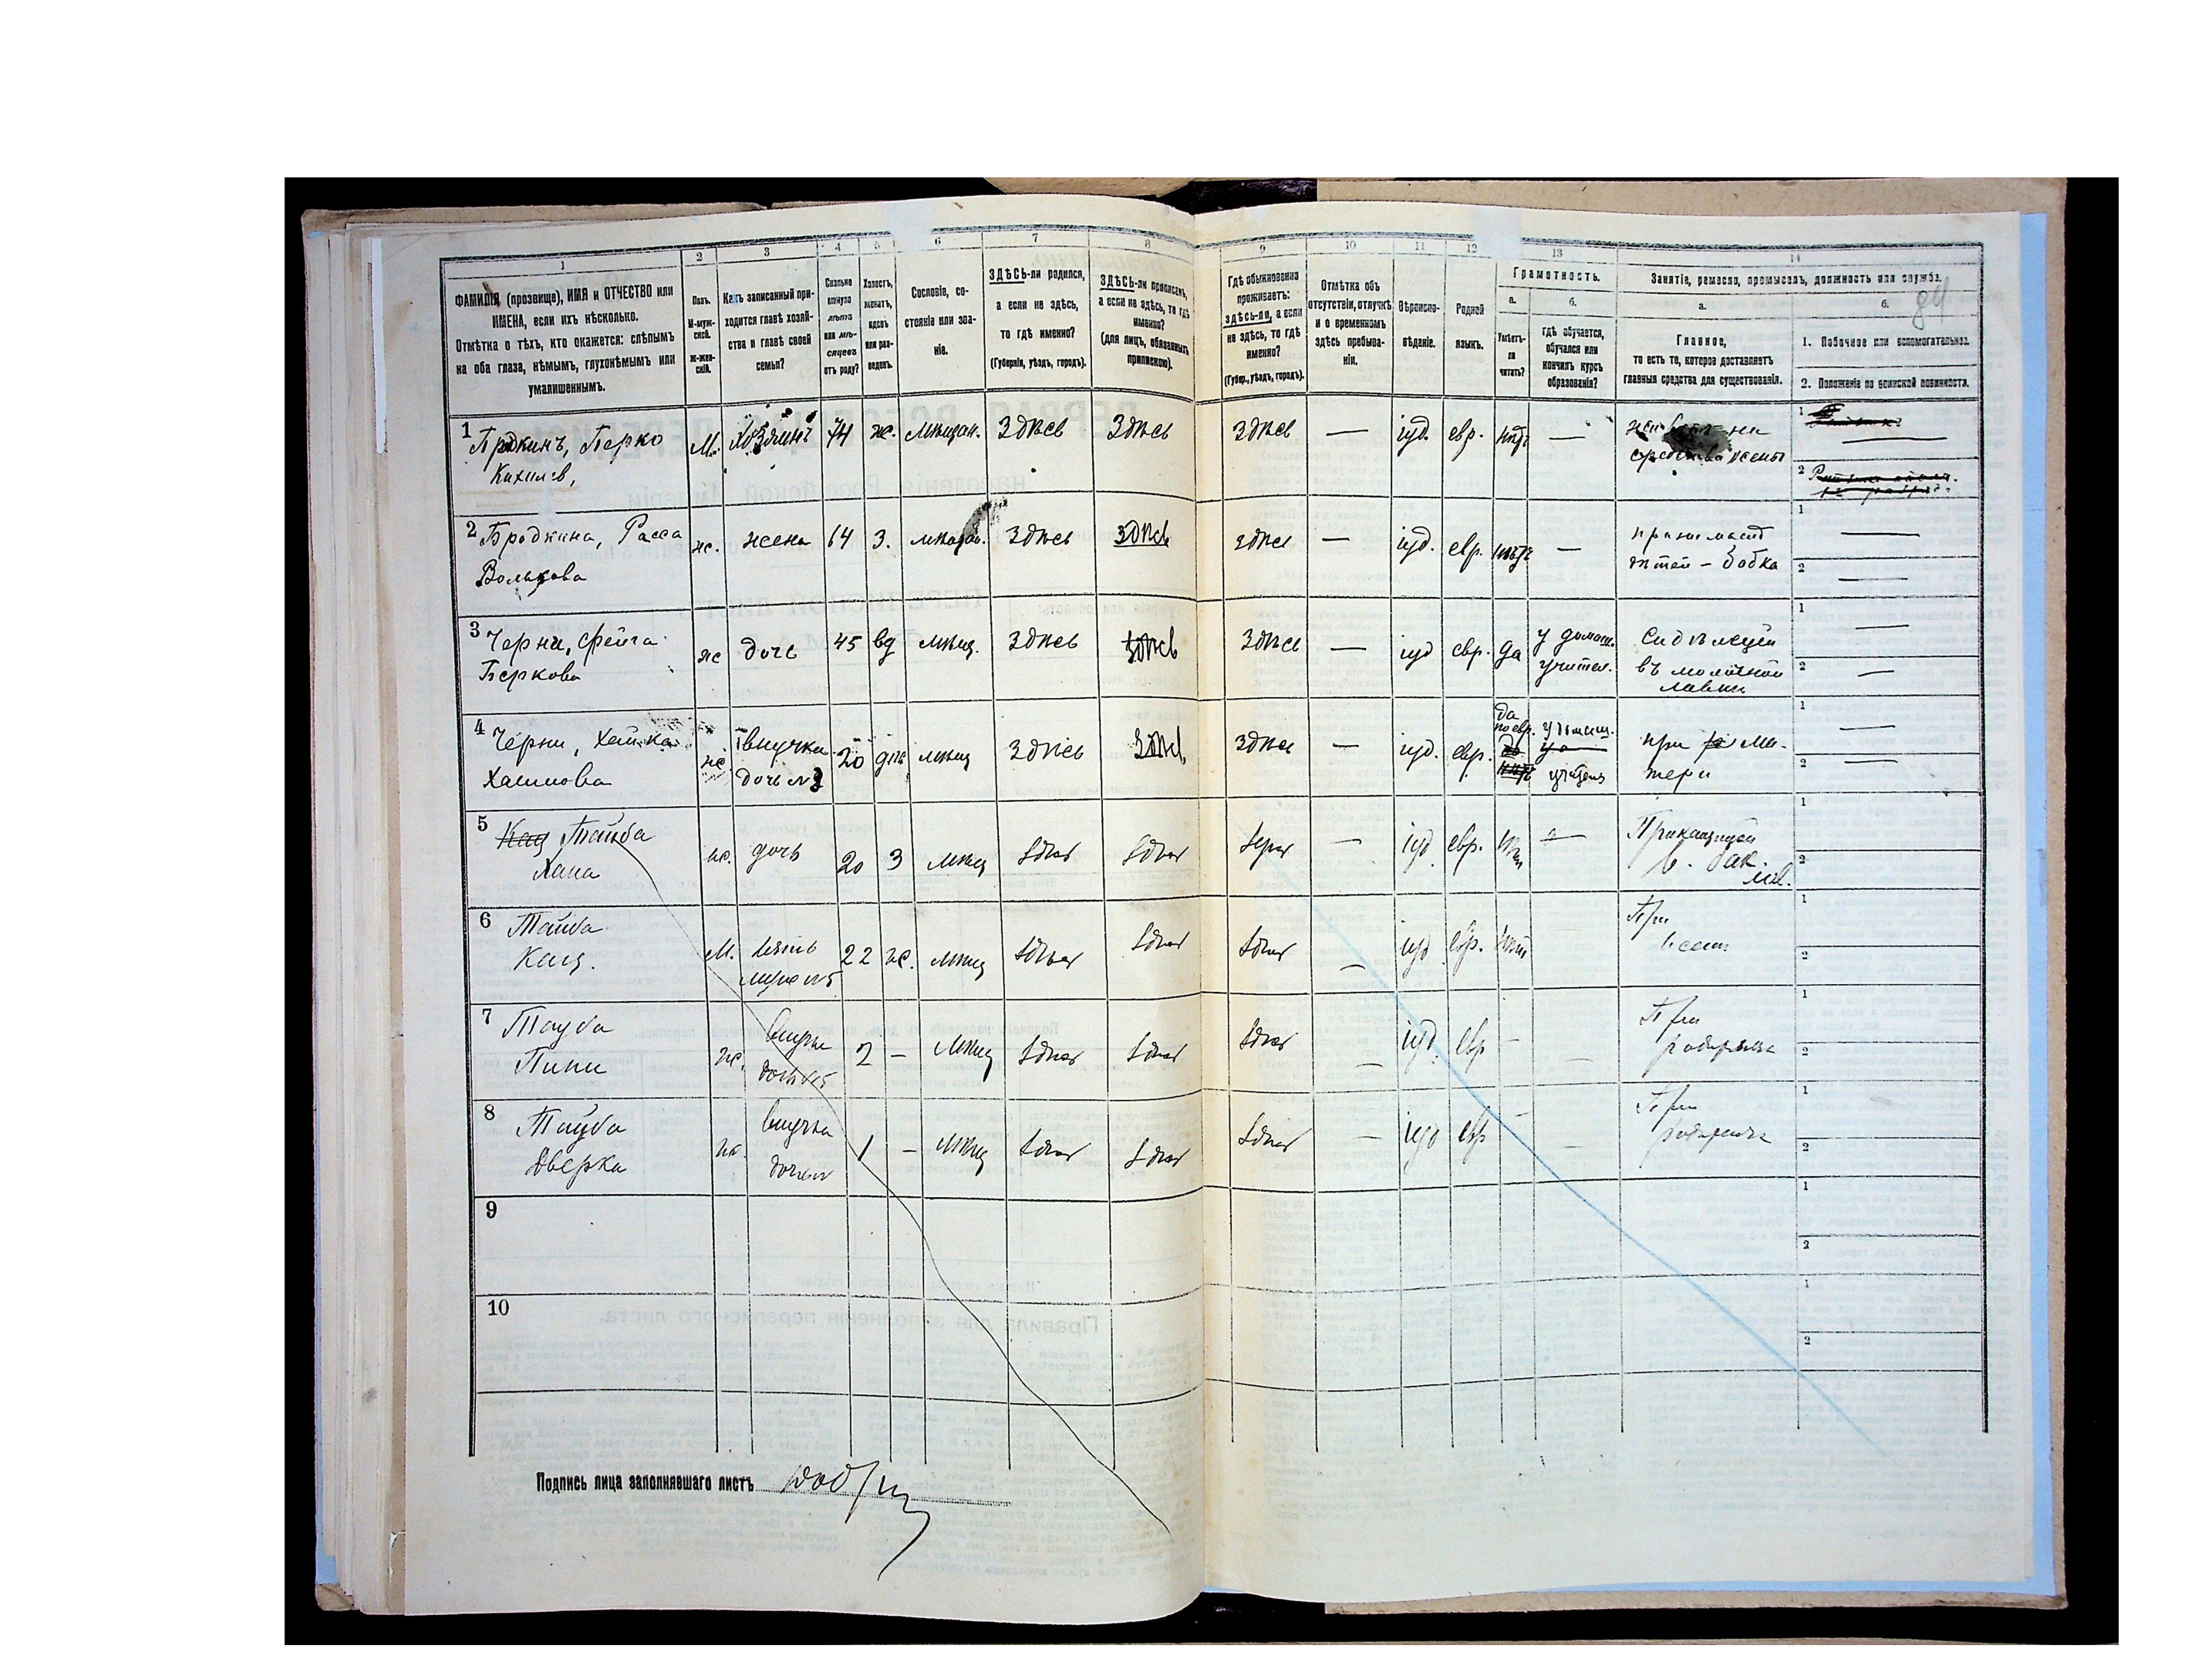 1
2
3
4
5
6
7
8
9
10
11
12
13
14
ФАМИЛІЯ (прозвище), ИМЯ и ОТЧЕСТВО или
ИМЕНА, если ихъ нѣсколько.
Отмѣтка о тѣхъ, кто окажется: слѣпымъ
на оба глаза, нѣмымъ, глухонѣмымъ или
умалишеннымъ.
Полъ.
М-муж-
ской.
Ж-жен-
скій.
Какъ записанный при-
ходится главѣ хозяй-
ства и главѣ своей
семьи?
Сколько
минуло
лѣтъ
или мѣ-
сяцевъ
отъ роду?
Холостъ,
женатъ,
вдовъ
или раз-
веденъ.
Сословіе, со-
стояніе или зва-
ніе.
ЗДѢСЬ-ли родился,
а если не здѣсь,
то гдѣ именно?
(Губернія, уѣздъ, городъ).
ЗДѢСЬ-ли приписанъ,
а если не здѣсь, то гдѣ
именно?
(для лицъ, обязанныхъ
припискою).
Гдѣ обыкновенно
проживаетъ:
здѣсь-ли, а если
не здѣсь, то гдѣ
именно?
(Губер., уѣздъ, городъ).
Отмѣтка объ
отсутствіи, отлучкѣ
и о временномъ
здѣсь пребыва-
ніи.
Вѣроиспо-
вѣданіе.
Родной
языкъ.
Грамотность.
а.
Умѣетъ-
ли
читать?
б.
гдѣ обучается,
обучался или
кончилъ курсъ
образованія?
Занятіе, ремесло, промыселъ, должность или служба.
84
а.
Главное,
то есть то, которое доставляетъ
главныя средства для существованія.
б.
1. Побочное или вспомогательное.
2. Положеніе по воинской повинности.
1 Берко
М. Хозяинъ 74 ж. мѣщан. Здѣсь Здѣсь Здѣсь — іуд. евр. нѣтъ —
средства жены
1 —
2
2 Бродкина, Расса
ж. жена 64 З. Здѣсь Здѣсь здѣсь — іуд. евр. нѣтъ — принимаетъ
дѣтей – бабка
1 —
2 —
3 Черни, Фейга
Беркова
ж дочь 45 вд мѣщ. Здѣсь Здѣсь Здѣсь — іуд евр. да у домаш.
учител.
Сидѣлецъ
въ молочной
лавки
1 —
2 —
4 Черни, Хайка
Хаимова
ж. внучка
дочь №3
20 дѣв мѣщ Здѣсь Здѣсь здѣсь — іуд. евр. да
по евр. у домаш.
при ма-
тери
1 —
2 —
5 Кац Тайба
Хана
ж. дочь 20 З мѣщ Здѣсь Здѣсь — іуд евр. —
1
2
6 Тайба
Кац.
М. зять
мужъ №5
22 ж. мѣщ Здѣсь Здѣсь Здѣсь — іуд евр. нѣтъ
При
женѣ
1
2
7 Тауба
ж. внучка
дочь №5
2 – мѣщ Здѣсь Здѣсь Здѣсь — іуд. евр – —
При
1
2
8 Тауба
Дверка
ж. внучка
1 – мѣщ Здѣсь Здѣсь Здѣсь — іуд евр —
При
1
2
9
1
2
10
1
2
Подпись лица заполнявшаго листъ